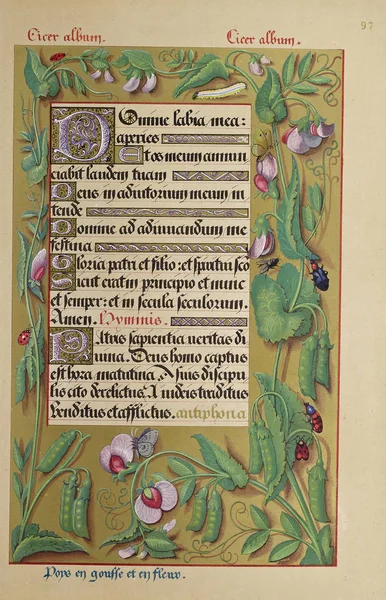 97
Cicer album. Cicer album.
Domine labia mea:
aperies
Et os meum annun
ciabit laudem tuam
Deus in adiutorium meum in
tende
Domine ad adiuuandum me
festina
Gloria patri et filio: et spiritui sco
Sicut erat in principio et nunc
et semper: et in secula seculorum.
Amen. Hymnus.
Patris sapientia veritas di
uina. Deus homo captus
est hora matutina. A suis discipu
lis cito derelictus. A iudeis traditus
Venditus et afflictus. antiphona
Poys en gousse et en fleur.